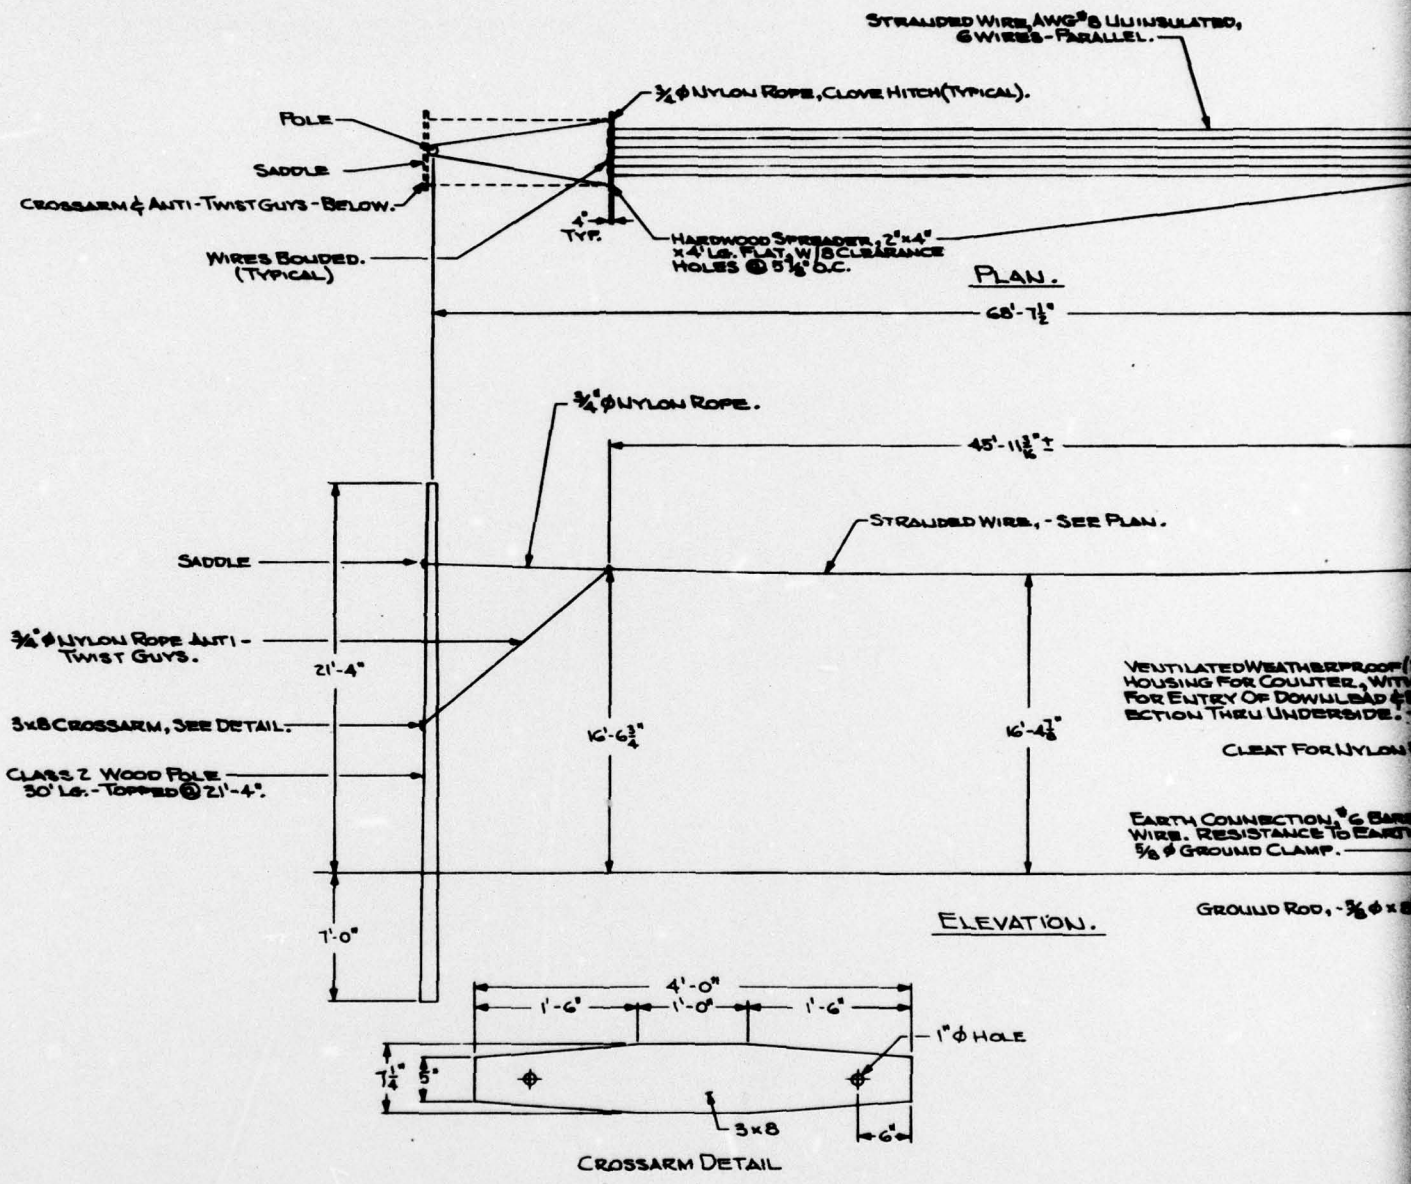 STRANDED WIRE, AWG #8 UNINSULATED,
6 WIRES - PARALLEL.
3/4 φ NYLON ROPE, CLOVE HITCH (TYPICAL).
POLE
SADDLE
CROSSARM & ANTI-TWIST GUYS - BELOW.
4"
TYP.
WIRES BONDED.
(TYPICAL)
HARDWOOD SPREADER, 2"x4"
x 4' LG. FLAT, W/8 CLEARANCE
HOLES @ 5 1/8" O.C.
PLAN.
68'-7 1/2"
3/4" φ NYLON ROPE.
45'-11 3/16" ±
STRANDED WIRE, - SEE PLAN.
SADDLE
3/4" φ NYLON ROPE ANTI-
TWIST GUYS.
21'-4"
3x8 CROSSARM, SEE DETAIL.
CLASS 2 WOOD POLE
30' LG. - TOPPED @ 21'-4".
16'-6 3/4"
16'-4 7/8"
VENTILATED WEATHERPROOF
HOUSING FOR COUNTER,
FOR ENTRY OF DOWNLEAD &
ECTION THRU UNDERSIDE.
CLEAT FOR NYLON
EARTH CONNECTION, #6
WIRE. RESISTANCE TO
5/8 φ GROUND CLAMP.
GROUND ROD, - 5/8 φ x 8
7'-0"
ELEVATION.
4'-0"
1'-6" 1'-0" 1'-6"
1" φ HOLE
7 1/4" 5"
3x8
6"
CROSSARM DETAIL